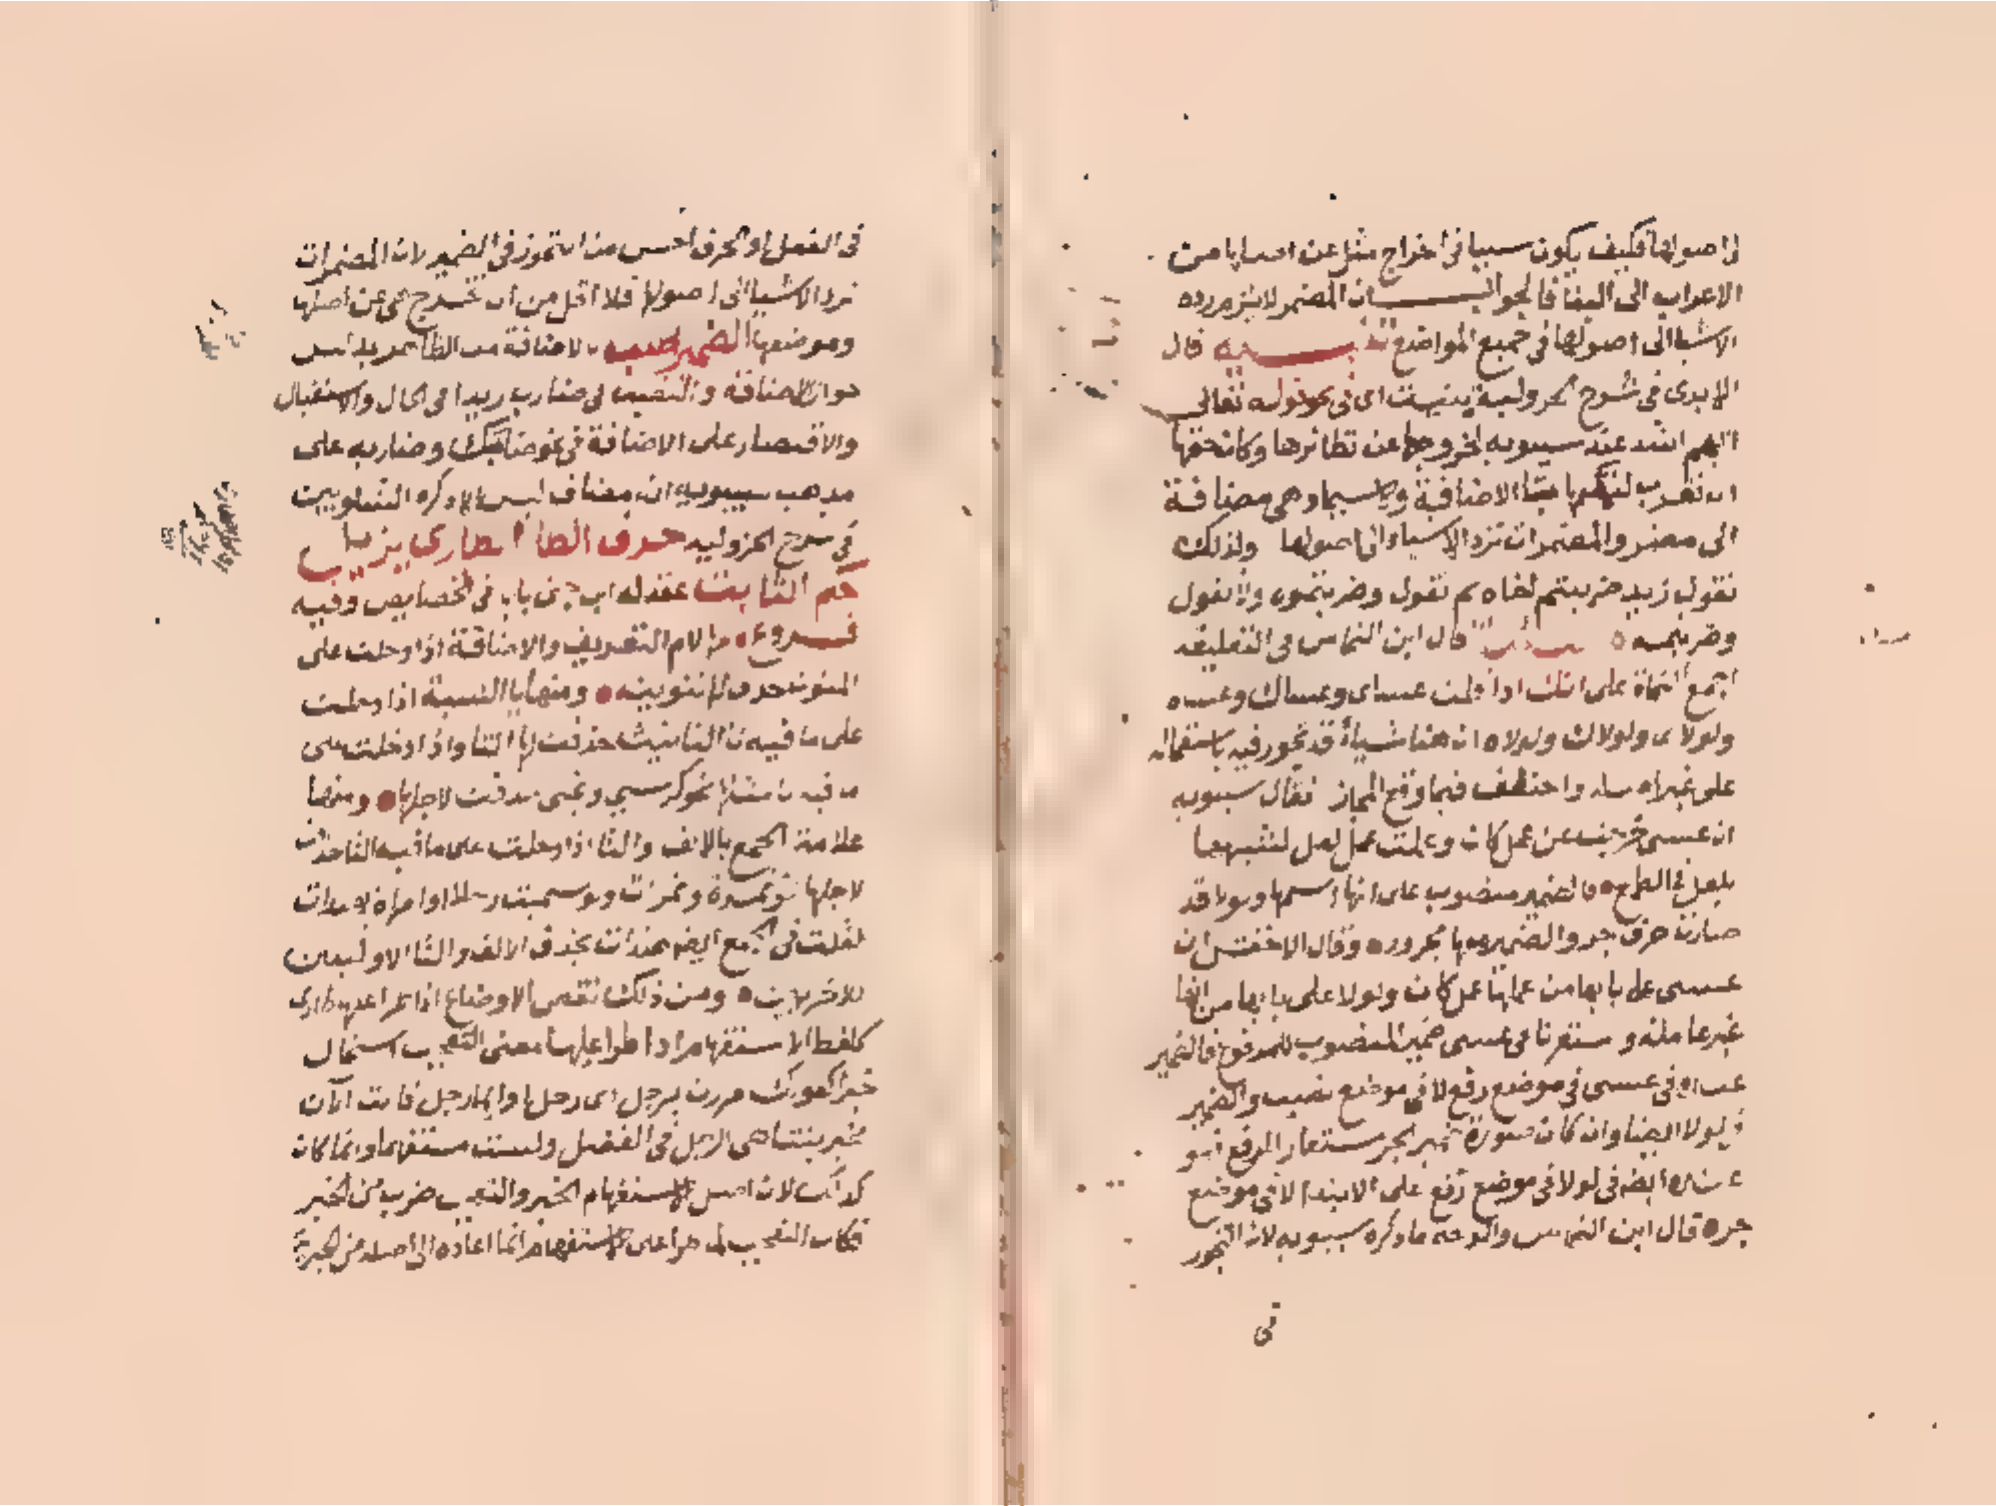 أصولها فكيف يكون سببا في إخراج مثل عن أصلها من
الاعراب الى البنا فالجواب ان المضمر لا يلزم رده
الاشيا الى اصولها في جميع المواضع تنبيه قال
الابدي في شرح الجزولية بنيت اى في نحو قوله تعالى
ايهم اشد عند سيبويه لخروجها عن نظائرها وكان حقها
ان تعرب لتمكنها بالاضافة ولا سيما وهي مضافة
الى مضمر والمضمرات ترد الاشياء الى اصولها ولذلك
تقول زيد ضربتم اخاه ثم تقول وضربتموه ولا تقول
وضربتمه قال ابن النحاس في التعليقة
اجمع النحاة على انك اذا قلت عساى وعساك وعساه
ولولاى ولولاك ولولاه ان هنا شيأ قد تجوز فيه باستعماله
على غير اصله واختلف فيما وقع المجاز فقال سيبويه
ان عسى خرجت عن عمل كان وعملت عمل لعل لشبهها
بلعل في الطمع فالضمير منصوب على انها اسمها ولولا قد
صارت حرف جر والضمير بها مجرور وقال الاخفش ان
عسى على بابها من عملها عمل كان ولولا على بابها من انها
غير عاملة و استعرنا في عسى ضمير المنصوب للمرفوع فالضمير
عنده في عسى في موضع رفع لا في موضع نصب والضمير
في لولا ايضا وان كان صورة ضمير الجر مستعار للرفع فهو
عنده ايضا في لولا في موضع رفع على الابتدا لا في موضع
جر قال ابن النحاس والوجه ما ذكره سيبويه لان التجوز
في
في الفعل او الحرف احسن من التجوز في الضمير لان المضمرات
ترد الاشيا الى اصولها فلا اقل من ان تخرج هي عن اصلها
وموضعها الضمير بالاضافة من الظاهر بدليل
جواز الاضافة والنصب في ضارب زيدا في الحال والاستقبال
والاقتصار على الاضافة في نحو ضاربك وضاربه على
مذهب سيبويه انه مضاف ليس الا ذكره الشلوبين
في شرح الجزولية حرف الطا الطارى يزيل
حكم الثابت عقد له ابن جنى باب في الخصايص وفيه
فروع منها لام التعريف والاضافة اذا دخلت على
المنون حذف لها تنوينه ومنها يا النسبة اذا دخلت
على ما فيه تا التانيث حذفت لها التا واذا دخلت على
ما فيه يا مثلها نحو كرسي وبختى حذفت لاجلها ومنها
علامة الجمع بالالف والتا اذا دخلت على ما فيه التا حذفت
لاجلها نحو تمرة وتمرات ولو سميت رجلا او امراة بهندات
لقلت في الجمع ايضا هندات بحذف الالف والتا الاوليين
للاخريين ومن ذلك نقض الاوضاع اذا طرا عليها طارى
كلفظ الاستفهام اذا طرا عليها معنى التعجب استحال
خبرا كقولك مررت برجل اى رجل او ايما رجل فانت الآن
مخبر بتناهى الرجل في الفضل ولست مستفهما وانما كان
كذلك لان اصل الاستفهام الخبر والتعجب ضرب من الخبر
فكان التعجب لما طرا على الاستفهام انما اعاده الى اصله من الخبرية